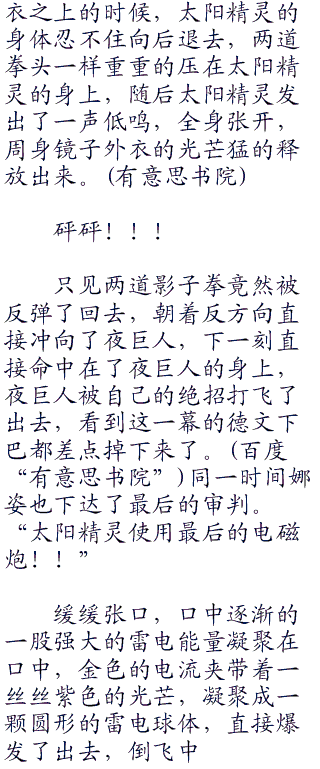 衣之上的时候，太阳精灵的
身体忍不住向后退去，两道
拳头一样重重的压在太阳精
灵的身上，随后太阳精灵发
出了一声低鸣，全身张开，
周身镜子外衣的光芒猛的释
放出来。(有意思书院)
砰砰！！！
只见两道影子拳竟然被
反弹了回去，朝着反方向直
接冲向了夜巨人，下一刻直
接命中在了夜巨人的身上，
夜巨人被自己的绝招打飞了
出去，看到这一幕的德文下
巴都差点掉下来了。(百度
“有意思书院”)同一时间娜
姿也下达了最后的审判。
“太阳精灵使用最后的电磁
炮！！”
缓缓张口，口中逐渐的
一股强大的雷电能量凝聚在
口中，金色的电流夹带着一
丝丝紫色的光芒，凝聚成一
颗圆形的雷电球体，直接爆
发了出去，倒飞中